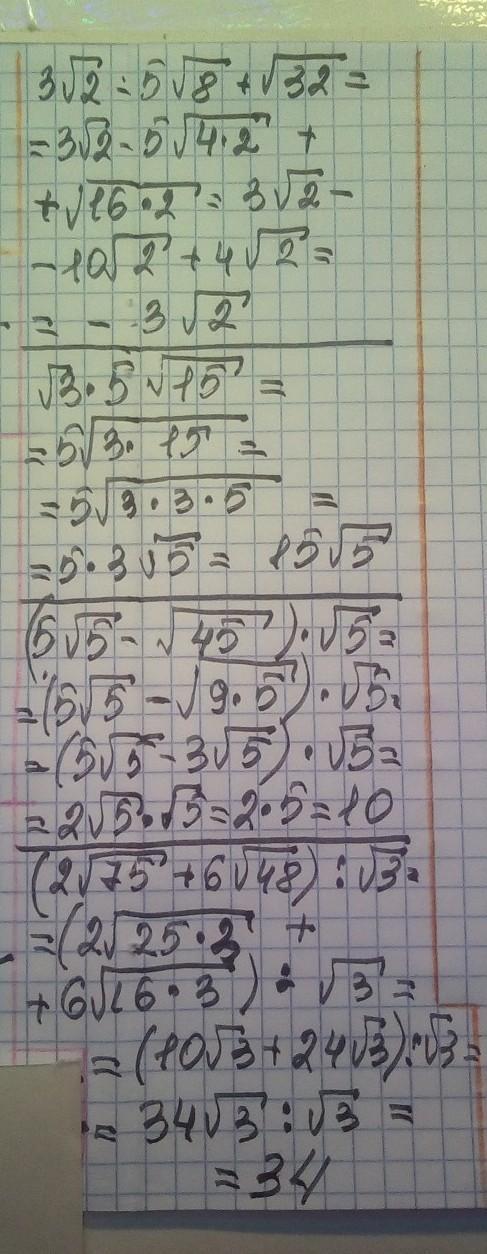 3√2 - 5√8 + √32 =
= 3√2 - 5√4·2 +
+ √16·2 = 3√2 -
- 10√2 + 4√2 =
= - 3√2
√3 · 5 √15 =
= 5√3· 15 =
= 5√3·3·5 =
= 5·3√5 = 15√5
(5√5 - √45) · √5 =
= (5√5 - √9·5) · √5 =
= (5√5 - 3√5) · √5 =
= 2√5·√5 = 2·5 = 10
(2√75 + 6√48) : √3 =
= (2√25·3 +
+ 6√16·3) : √3 =
= (10√3 + 24√3) : √3 =
= 34√3 : √3 =
= 34